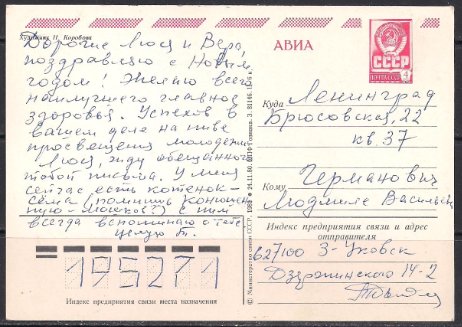 Художник П. Коробова
Дорогие Люся и Вера,
поздравляю с Новым
годом! Желаю всего
наилучшего главное
здоровья. Успехов в
вашем деле на ниве
просвещения молодежи
Люся, жду обещанного
тобой письма. У меня
сейчас есть котенок-
Сёма (помнишь
всегда вспоминаю о тебе
целую Т.
195271
Индекс предприятия связи места назначения
© Министерство связи СССР
24.11.80
АВИА
СССР
ПОЧТА
4
Куда Ленинград
Брюсовская, 22
кв. 37
Кому Германович
Людмиле
Индекс предприятия связи и адрес
отправителя
627100 З-Уковск
Дзержинского 14-2